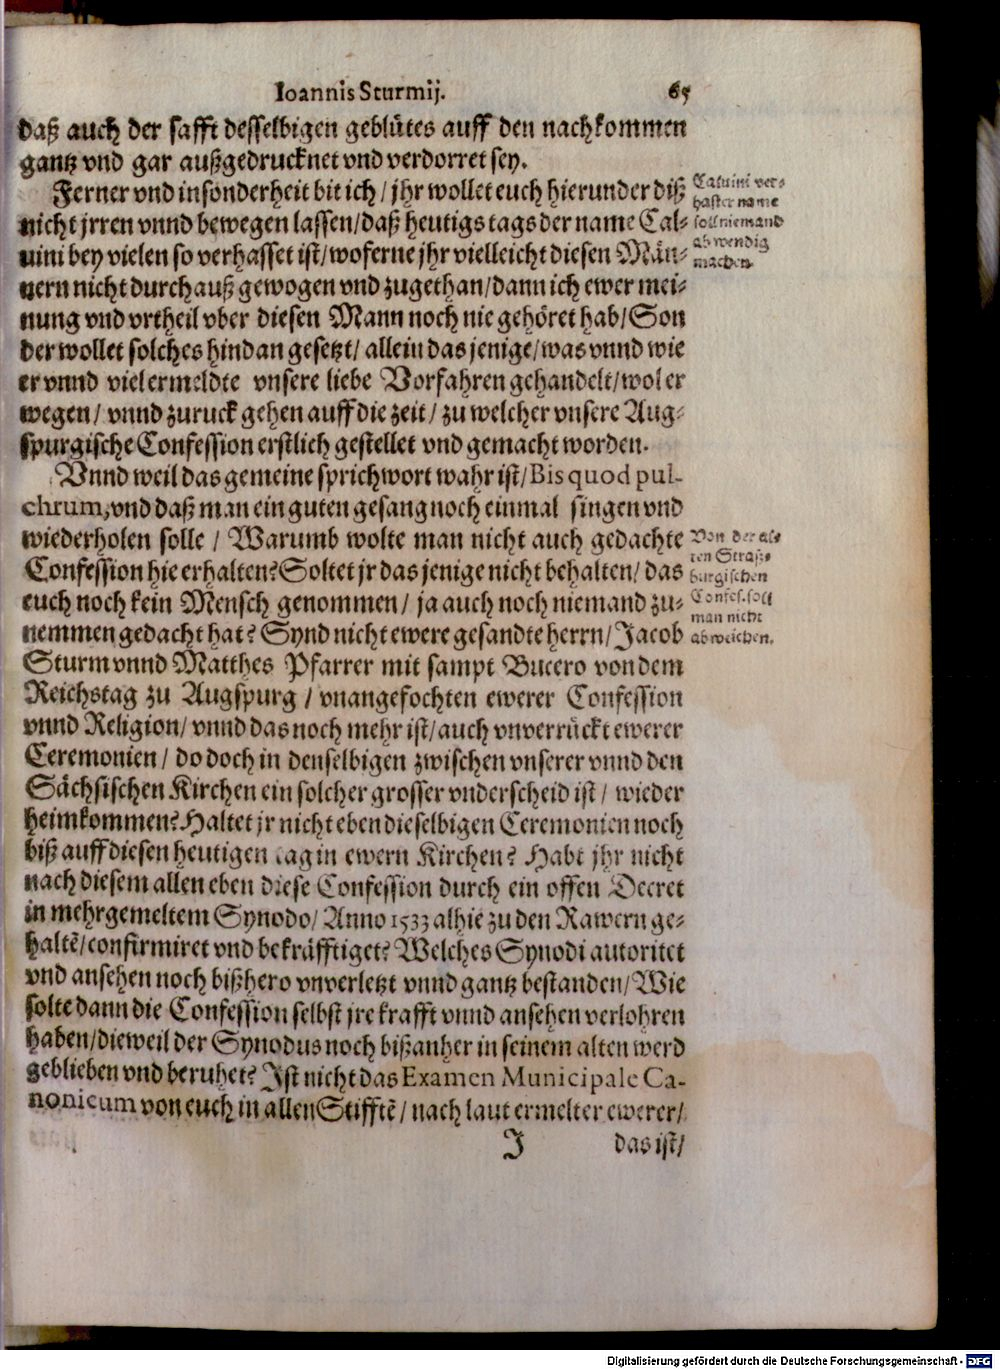 Ioannis Sturmij. 65
daß auch der safft desselbigen geblütes auff den nachkommen
gantz vnd gar außgedrucknet vnd verdorret sey.
Ferner vnd insonderheit bit ich / jhr wollet euch hierunder diß
nicht jrren vnnd bewegen lassen / daß heutigs tags der name Cal-
uini bey vielen so verhasset ist / woferne jhr vielleicht diesen Män-
nern nicht durchauß gewogen vnd zugethan / dann ich ewer mei-
nung vnd vrtheil vber diesen Mann noch nie gehöret hab / Son
der wollet solches hindan gesetzt / allein das jenige / was vnnd wie
er vnnd viel ermeldte vnsere liebe Vorfahren gehandelt / wol er
wegen / vnnd zuruck gehen auff die zeit / zu welcher vnsere Aug-
spurgische Confession erstlich gestellet vnd gemacht worden.
Caluini ver-
haster name
soll niemand
abwendig
machen.
Vnnd weil das gemeine sprichwort wahr ist / Bis quod pul-
chrum, vnd daß man ein guten gesang noch einmal singen vnd
wiederholen solle / Warumb wolte man nicht auch gedachte
Confession hie erhalten? Soltet jr das jenige nicht behalten / das
euch noch kein Mensch genommen / ja auch noch niemand zu-
nemmen gedacht hat? Synd nicht ewere gesandte herrn / Jacob
Sturm vnnd Matthes Pfarrer mit sampt Bucero von dem
Reichstag zu Augspurg / vnangefochten ewerer Confession
vnnd Religion / vnnd das noch mehr ist / auch vnverrückt ewerer
Ceremonien / do doch in denselbigen zwischen vnserer vnnd den
Sächsischen Kirchen ein solcher grosser vnderscheid ist / wieder
heimkommen? Haltet jr nicht eben dieselbigen Ceremonien noch
biß auff diesen heutigen tag in ewern Kirchen? Habt jhr nicht
nach diesem allen eben diese Confession durch ein offen Decret
in mehrgemeltem Synodo / Anno 1533 alhie zu den Rawern ge-
haltē / confirmiret vnd bekräfftiget? Welches Synodi autoritet
vnd ansehen noch bißhero vnverletzt vnnd gantz bestanden / Wie
solte dann die Confession selbst jre krafft vnnd ansehen verlohren
haben / dieweil der Synodus noch bißanher in seinem alten werd
geblieben vnd beruhet? Ist nicht das Examen Municipale Ca-
nonicum von euch in allen Stifftē / nach laut ermelter ewerer /
Von der al-
ten Straß-
burgischen
Confes. soll
man nicht
abweichen.
J das ist /
Digitalisierung gefördert durch die Deutsche Forschungsgemeinschaft - DFG